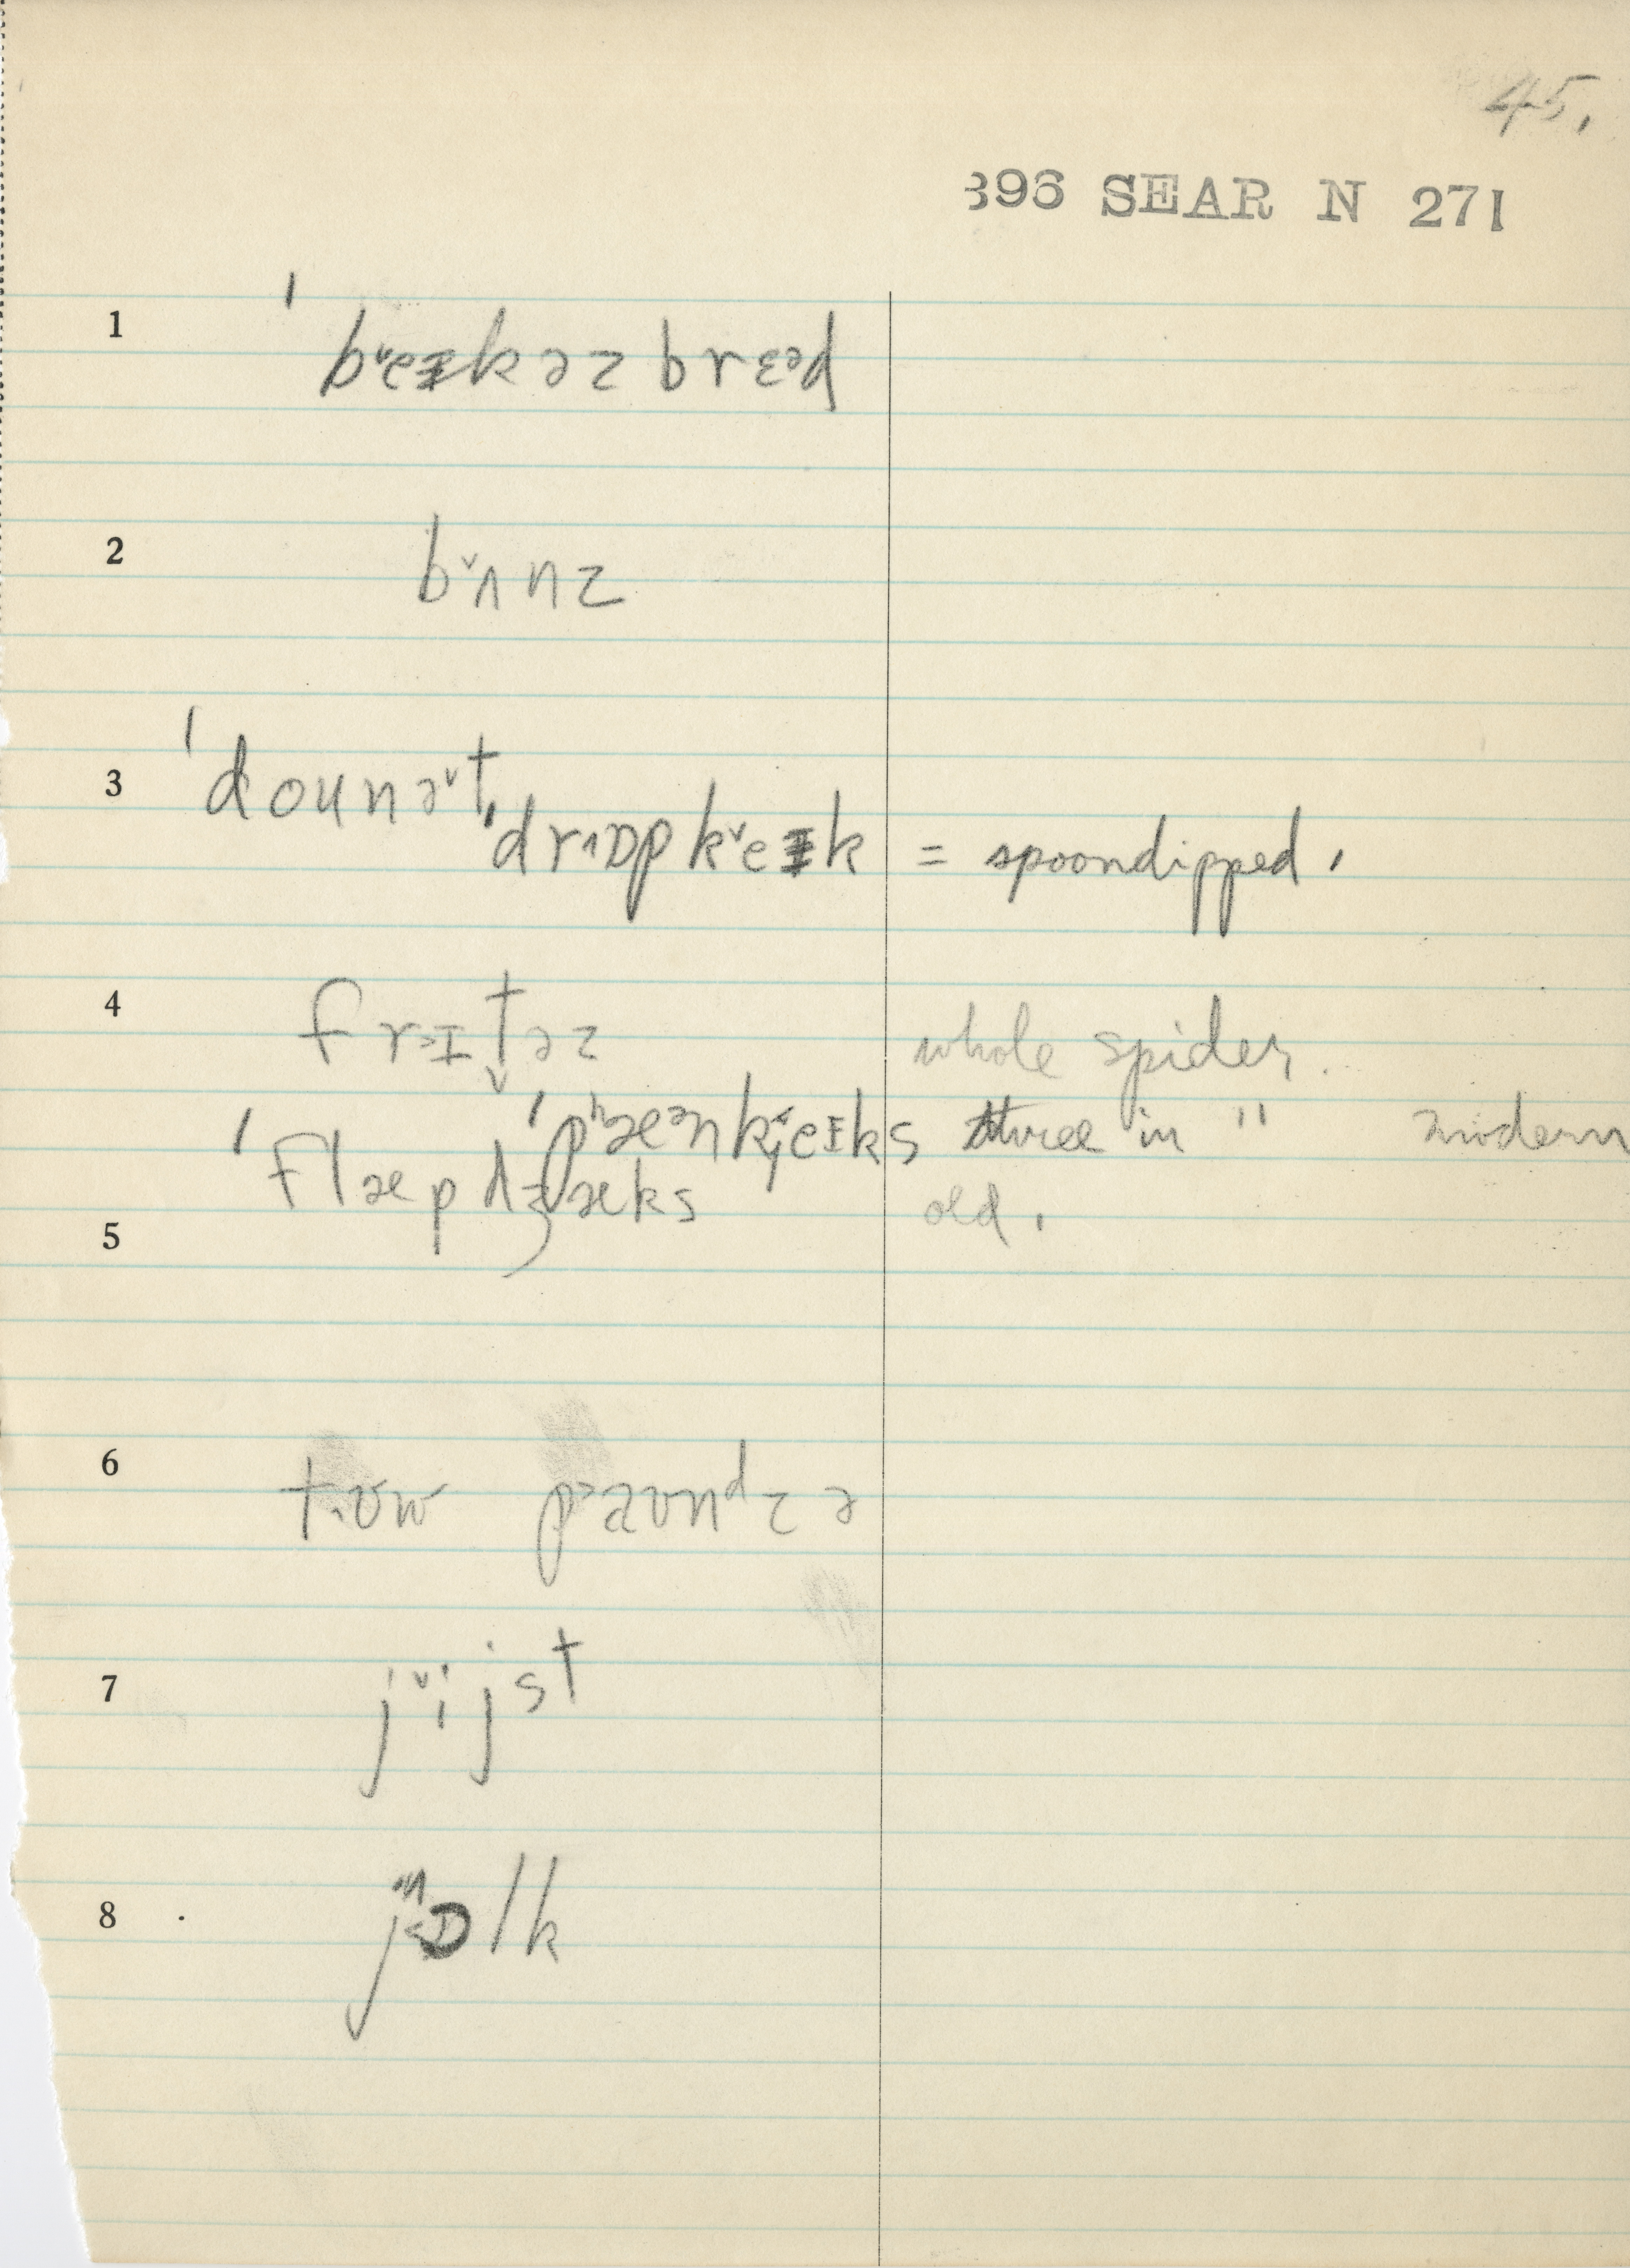 45.
396 SEAR N 271
1 ˈbe˅ɪkəz brɛᵊd
2 b˅ʌnz
3 ˈdounə˅t,
ˈdr˄ɒp k˅eɪk = spoondipped.
4 fr>ɪt̬əz whole spider.
ˈpʰæᵊnk̟˂eɪks three in " modern
5 ˈflæpdʒæks old.
6 t˄ʊw p>aʊnᵈz ə
7 j˅ijst
8 j˂ɒlk